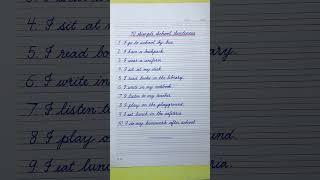 10 simple school sentences
1. I go to school by bus.
2. I have a backpack.
3. I wear a uniform.
4. I sit at my desk.
5. I read books in the library.
6. I write in my notebook.
7. I listen to my teacher.
8. I play on the playground.
9. I eat lunch in the cafeteria.
10. I do my homework after school.